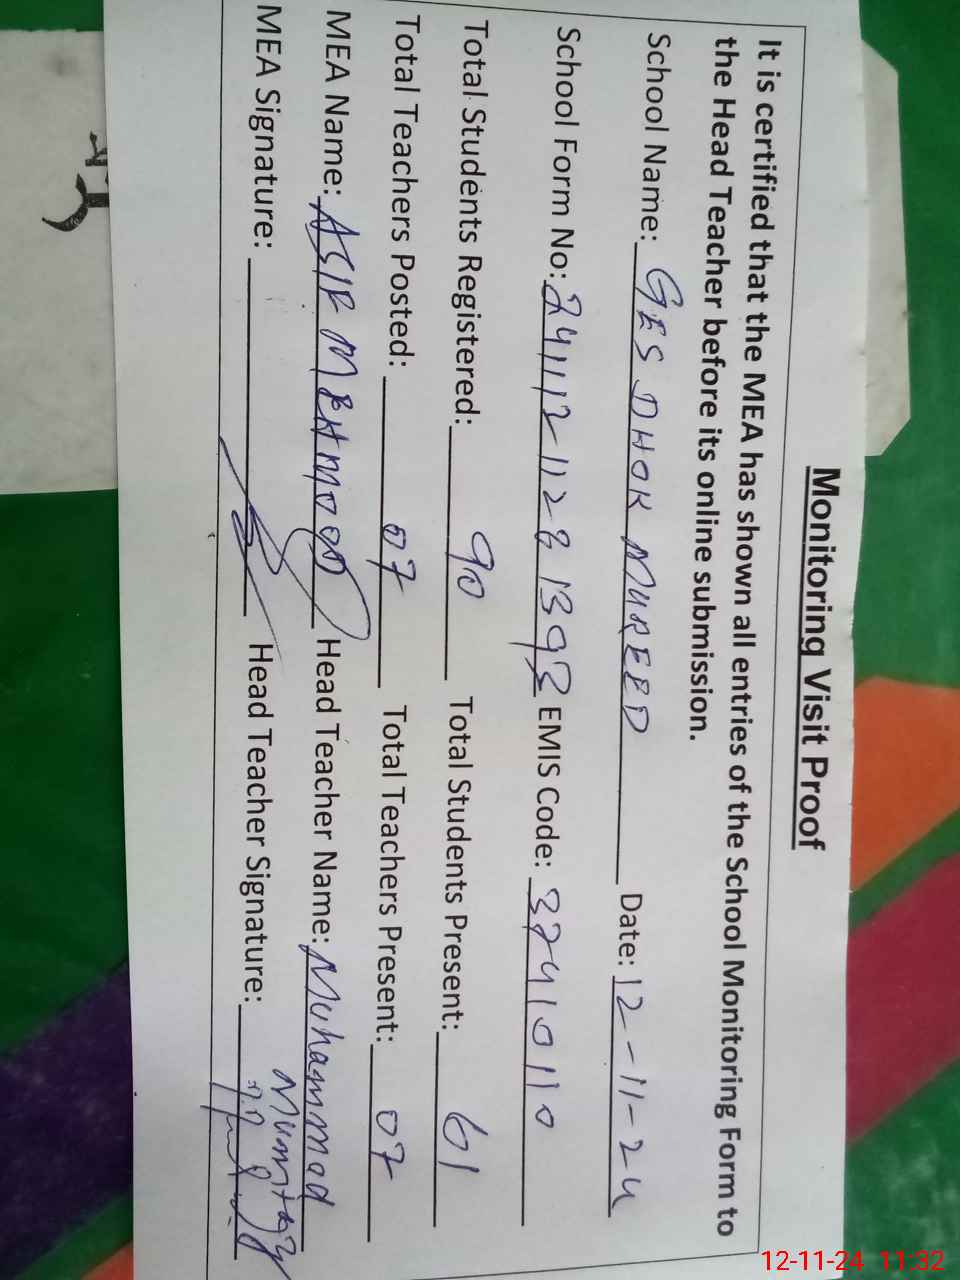 Monitoring Visit Proof
It is certified that the MEA has shown all entries of the School Monitoring Form to
the Head Teacher before its online submission.
School Name: GES DHOK MUREED Date: 12-11-24
School Form No: 24111211281393 EMIS Code: 37410110
Total Students Registered: 90 Total Students Present: 61
Total Teachers Posted: 07 Total Teachers Present: 07
MEA Name: ASIF MEHMOOD Head Teacher Name: Muhammad Mumtaz
MEA Signature: Head Teacher Signature:
12-11-24 11:32